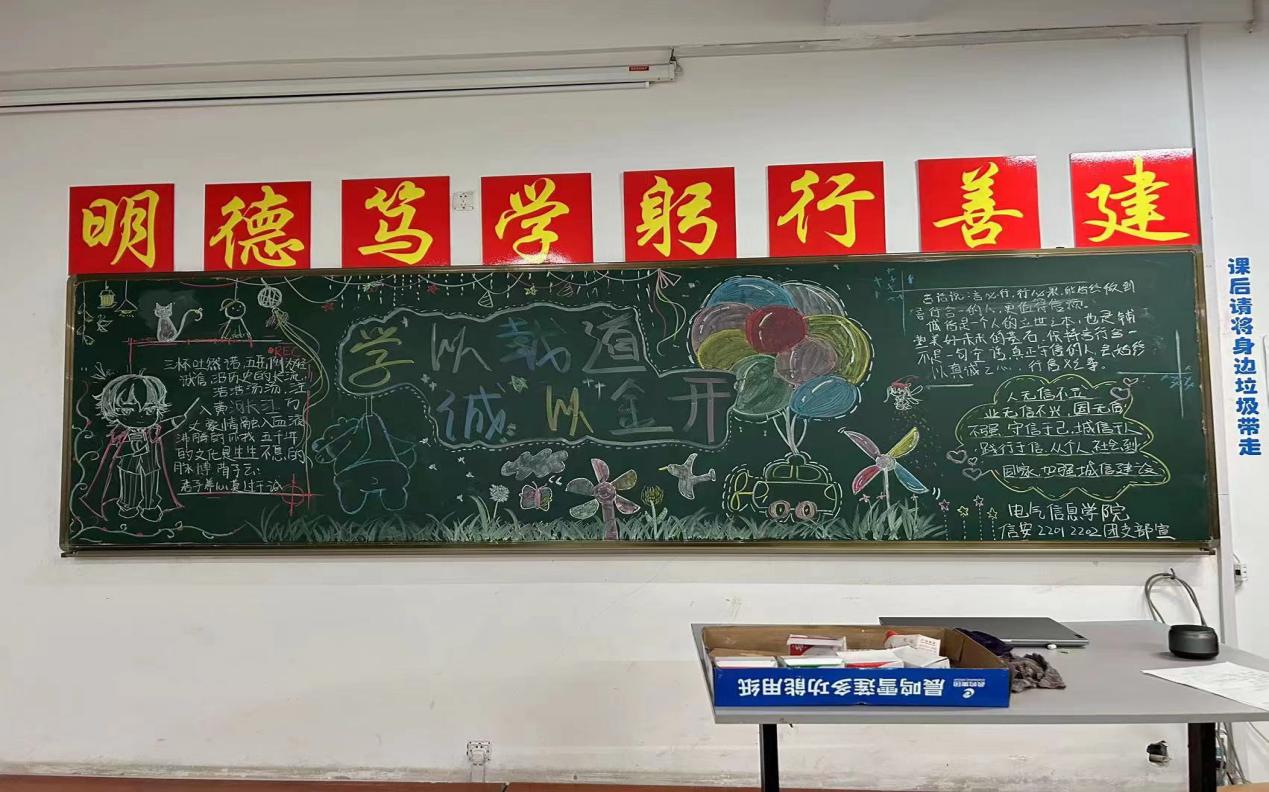 明德笃学躬行善建
REC
三杯吐然诺,五
诚信
浩浩汤汤
入黄河长江,万
丈豪情融入血液
五十年
的文化民生不息的
脉搏
学以载道
诚以金开
古语说:言必行,行必果,能始终做到
言行合一的人,更值得信赖。
诚信是一个人的立世之本,也是铺
垫美好未来的基石,保持言行合一
不是一句空话,真正守信的人,会始终
以真诚之心,行信义之事。
人无信不立
业无信不兴,国无信
不强,守信于己,诚信于人
践行于信,从个人,社会到
国家,加强诚信建设
电气信息学院
信安2201 2202团支部宣
课后请将身边垃圾带走
晨鸣雪莲多功能用纸